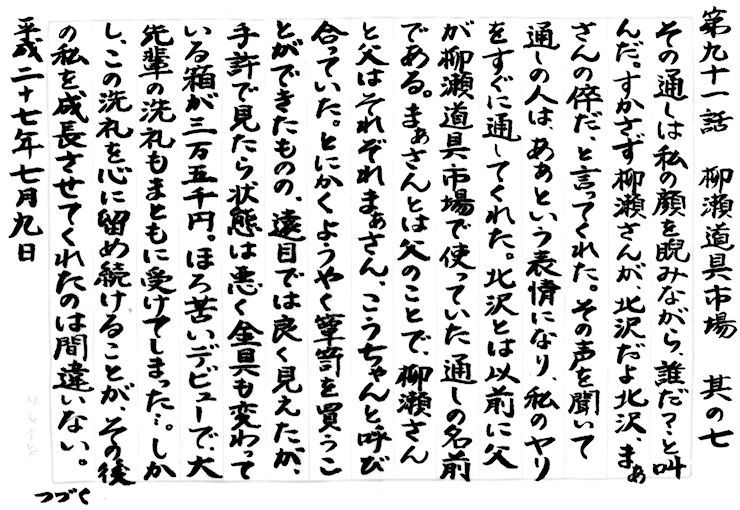 第九十一話　柳瀬道具市場　其の七
その通しは私の顔を睨みながら、誰だ？と叫
んだ。すかさず柳瀬さんが、北沢だよ北沢、まぁ
さんの倅だ、と言ってくれた。その声を聞いて
通しの人は、あぁという表情になり、私のヤリ
をすぐに通してくれた。北沢とは以前に父
が柳瀬道具市場で使っていた通しの名前
である。まぁさんとは父のことで、柳瀬さん
と父はそれぞれまぁさん、こうちゃんと呼び
合っていた。とにかくようやく箪笥を買うこ
とができたものの、遠目では良く見えたが、
手許で見たら状態は悪く金具も変わって
いる箱が三万五千円。ほろ苦いデビューで、大
先輩の洗礼もまともに受けてしまった…。しか
し、この洗礼を心に留め続けることが、その後
の私を成長させてくれたのは間違いない。
平成二十七年七月九日
つづく